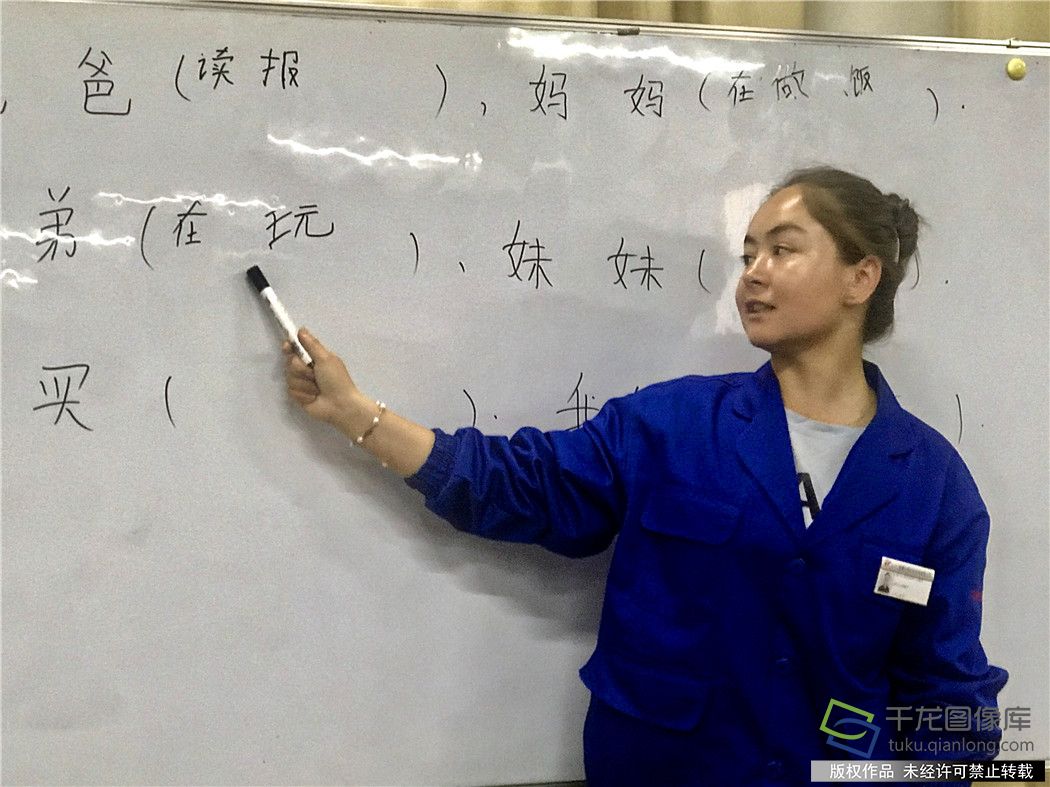 爸(读报),妈妈(在做饭).
弟(在玩)、妹妹()
买().我()
A
千龙图像库
tuku.qianlong.com
版权作品 未经许可禁止转载